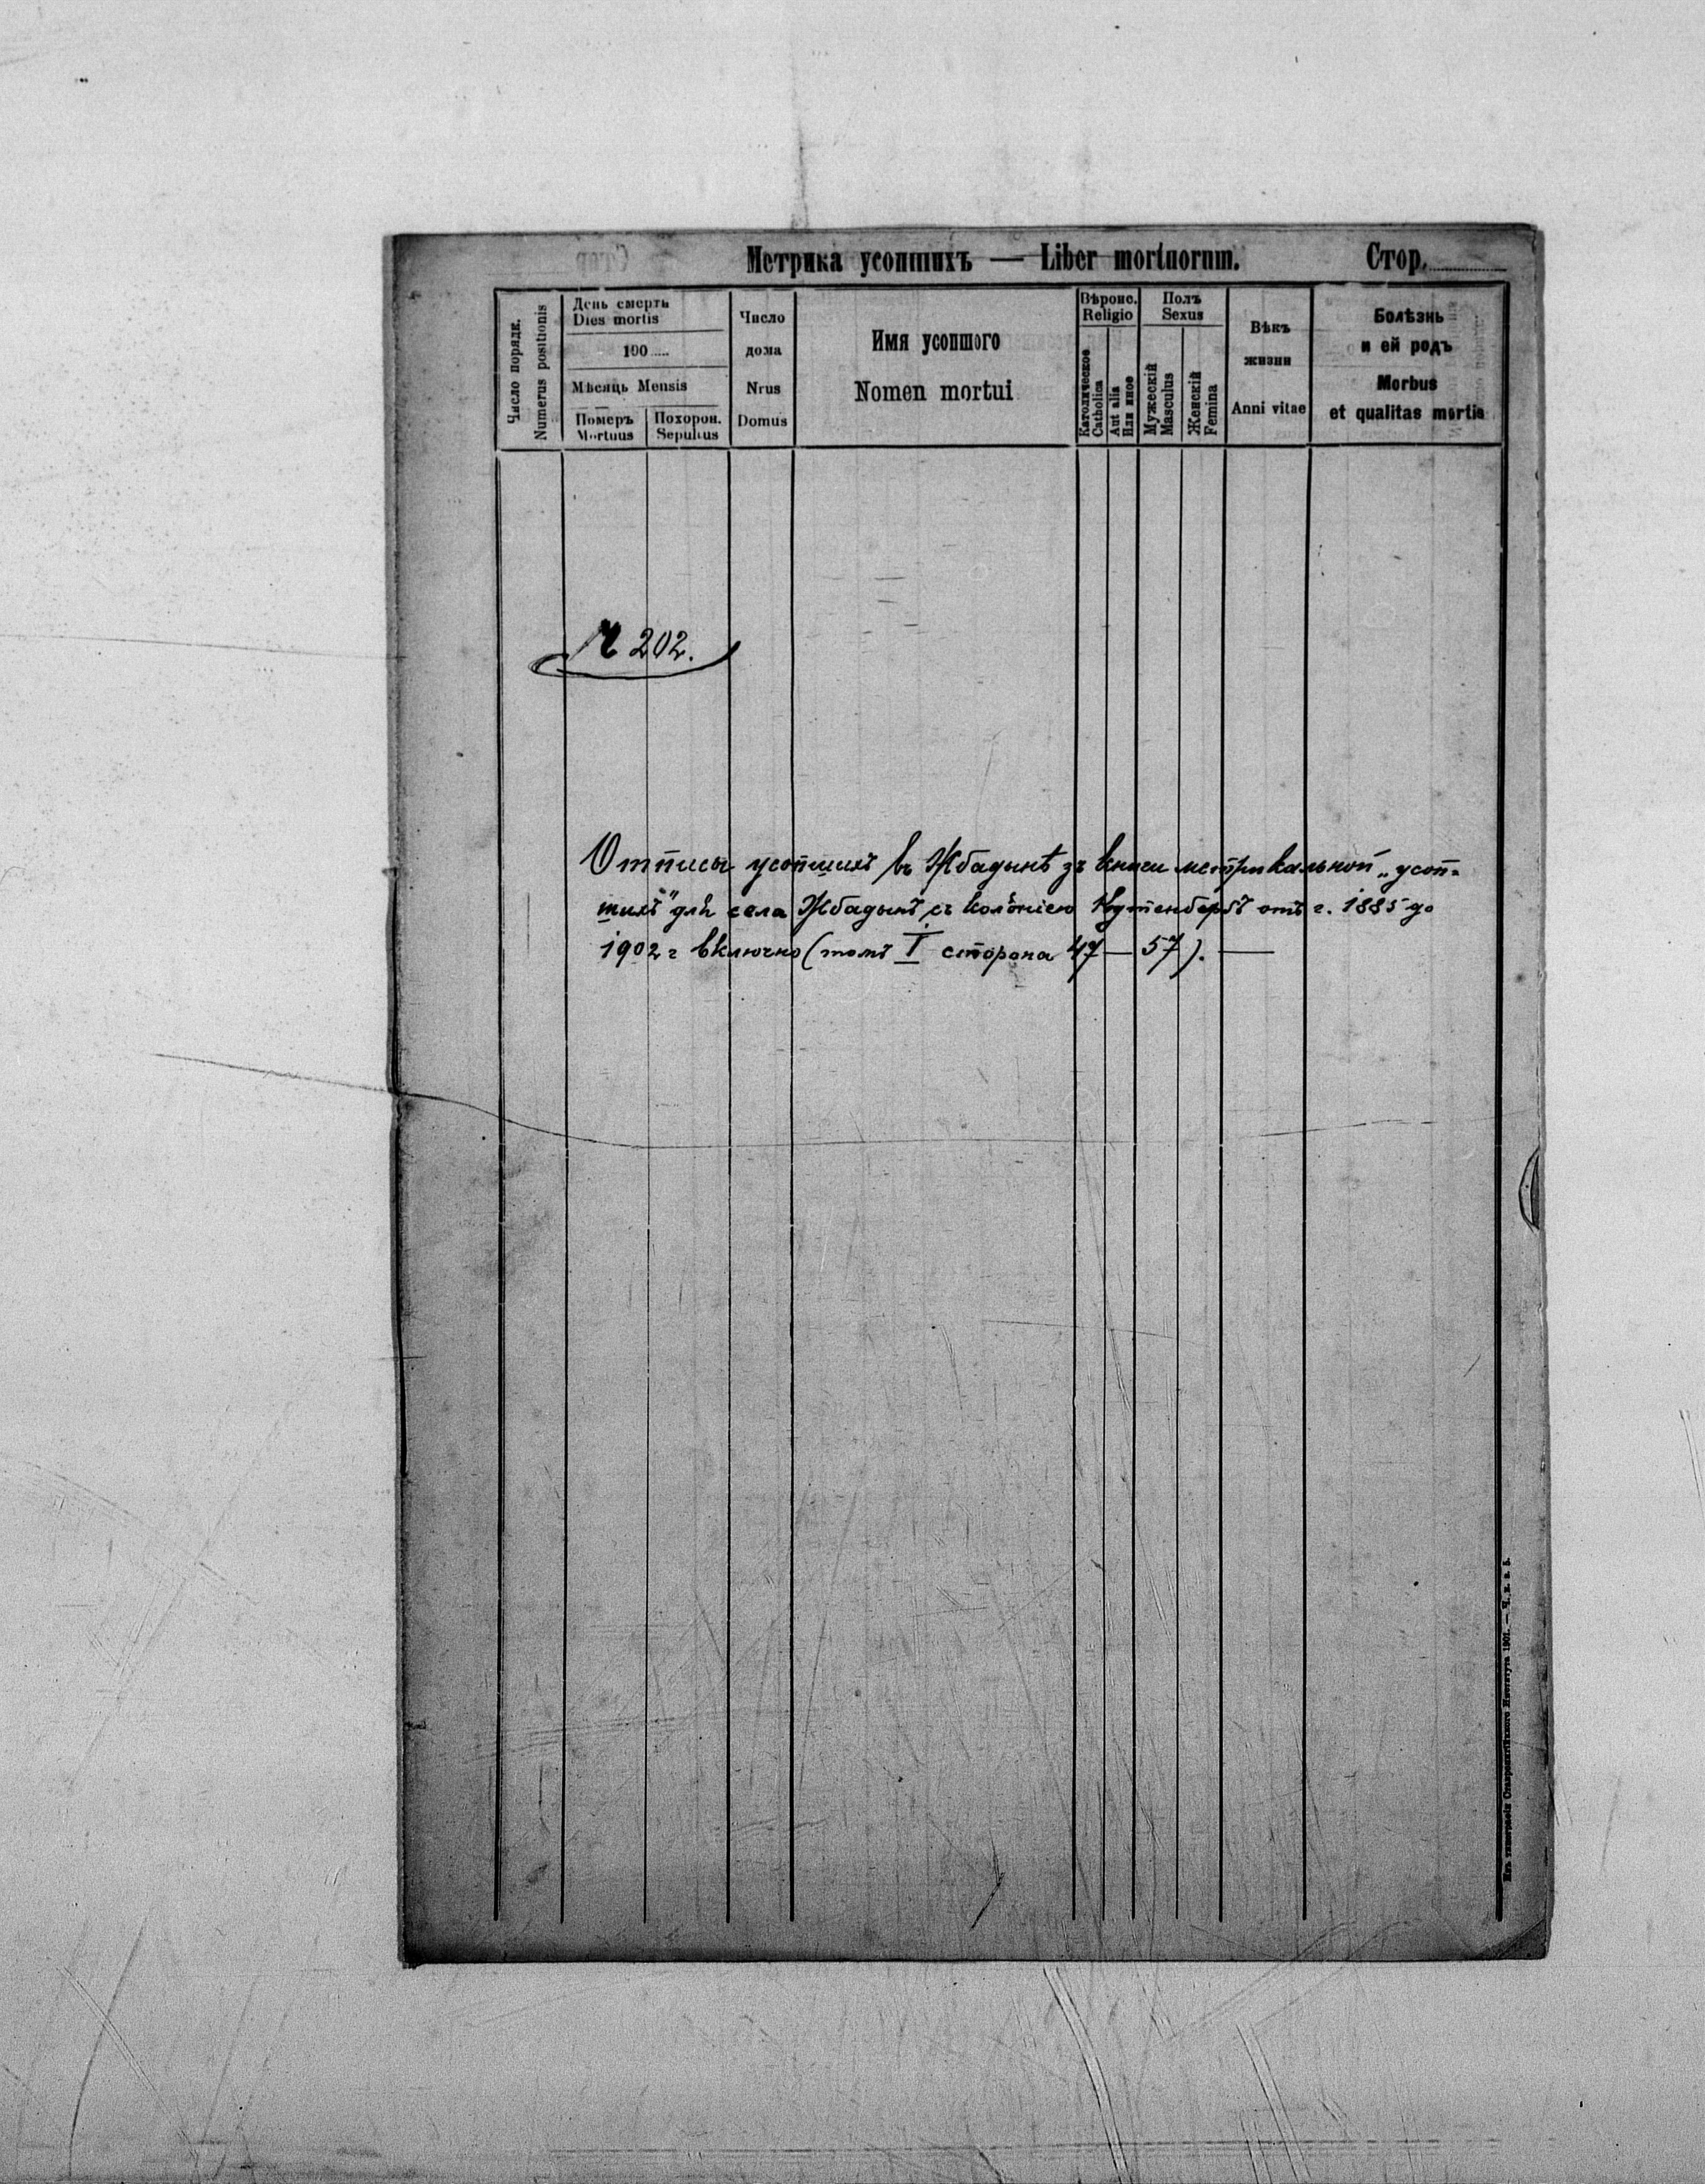 Метрика усопшихъ — Liber mortuorum. Стор.
Число порядк.
Numerus positionis
День смерти
Dies mortis
190.....
Мѣсяць Mensis
Померъ
Mortuus
Похорон.
Sepultus
Число
дома
Nrus
Domus
Имя усопшого
Nomen mortui
Вѣроис.
Religio
Католическое
Catholica
Aut alia
Или иное
Полъ
Sexus
Мужескій
Masculus
Женскій
Femina
Вѣкъ
жизни
Anni vitae
Болѣзнь
и ей родъ
Morbus
et qualitas mortis
202.
Отписы усопшихъ въ Жбадынѣ зъ книги метрикальной „усоп-
шихъ" для села Жбадынѣ съ колоніею отъ г. 1885 до
1902 г включно (томъ I сторона 47 — 57). —
Изъ типографіи Ставропигійского Института 1901. — Ч. д. в. 5.